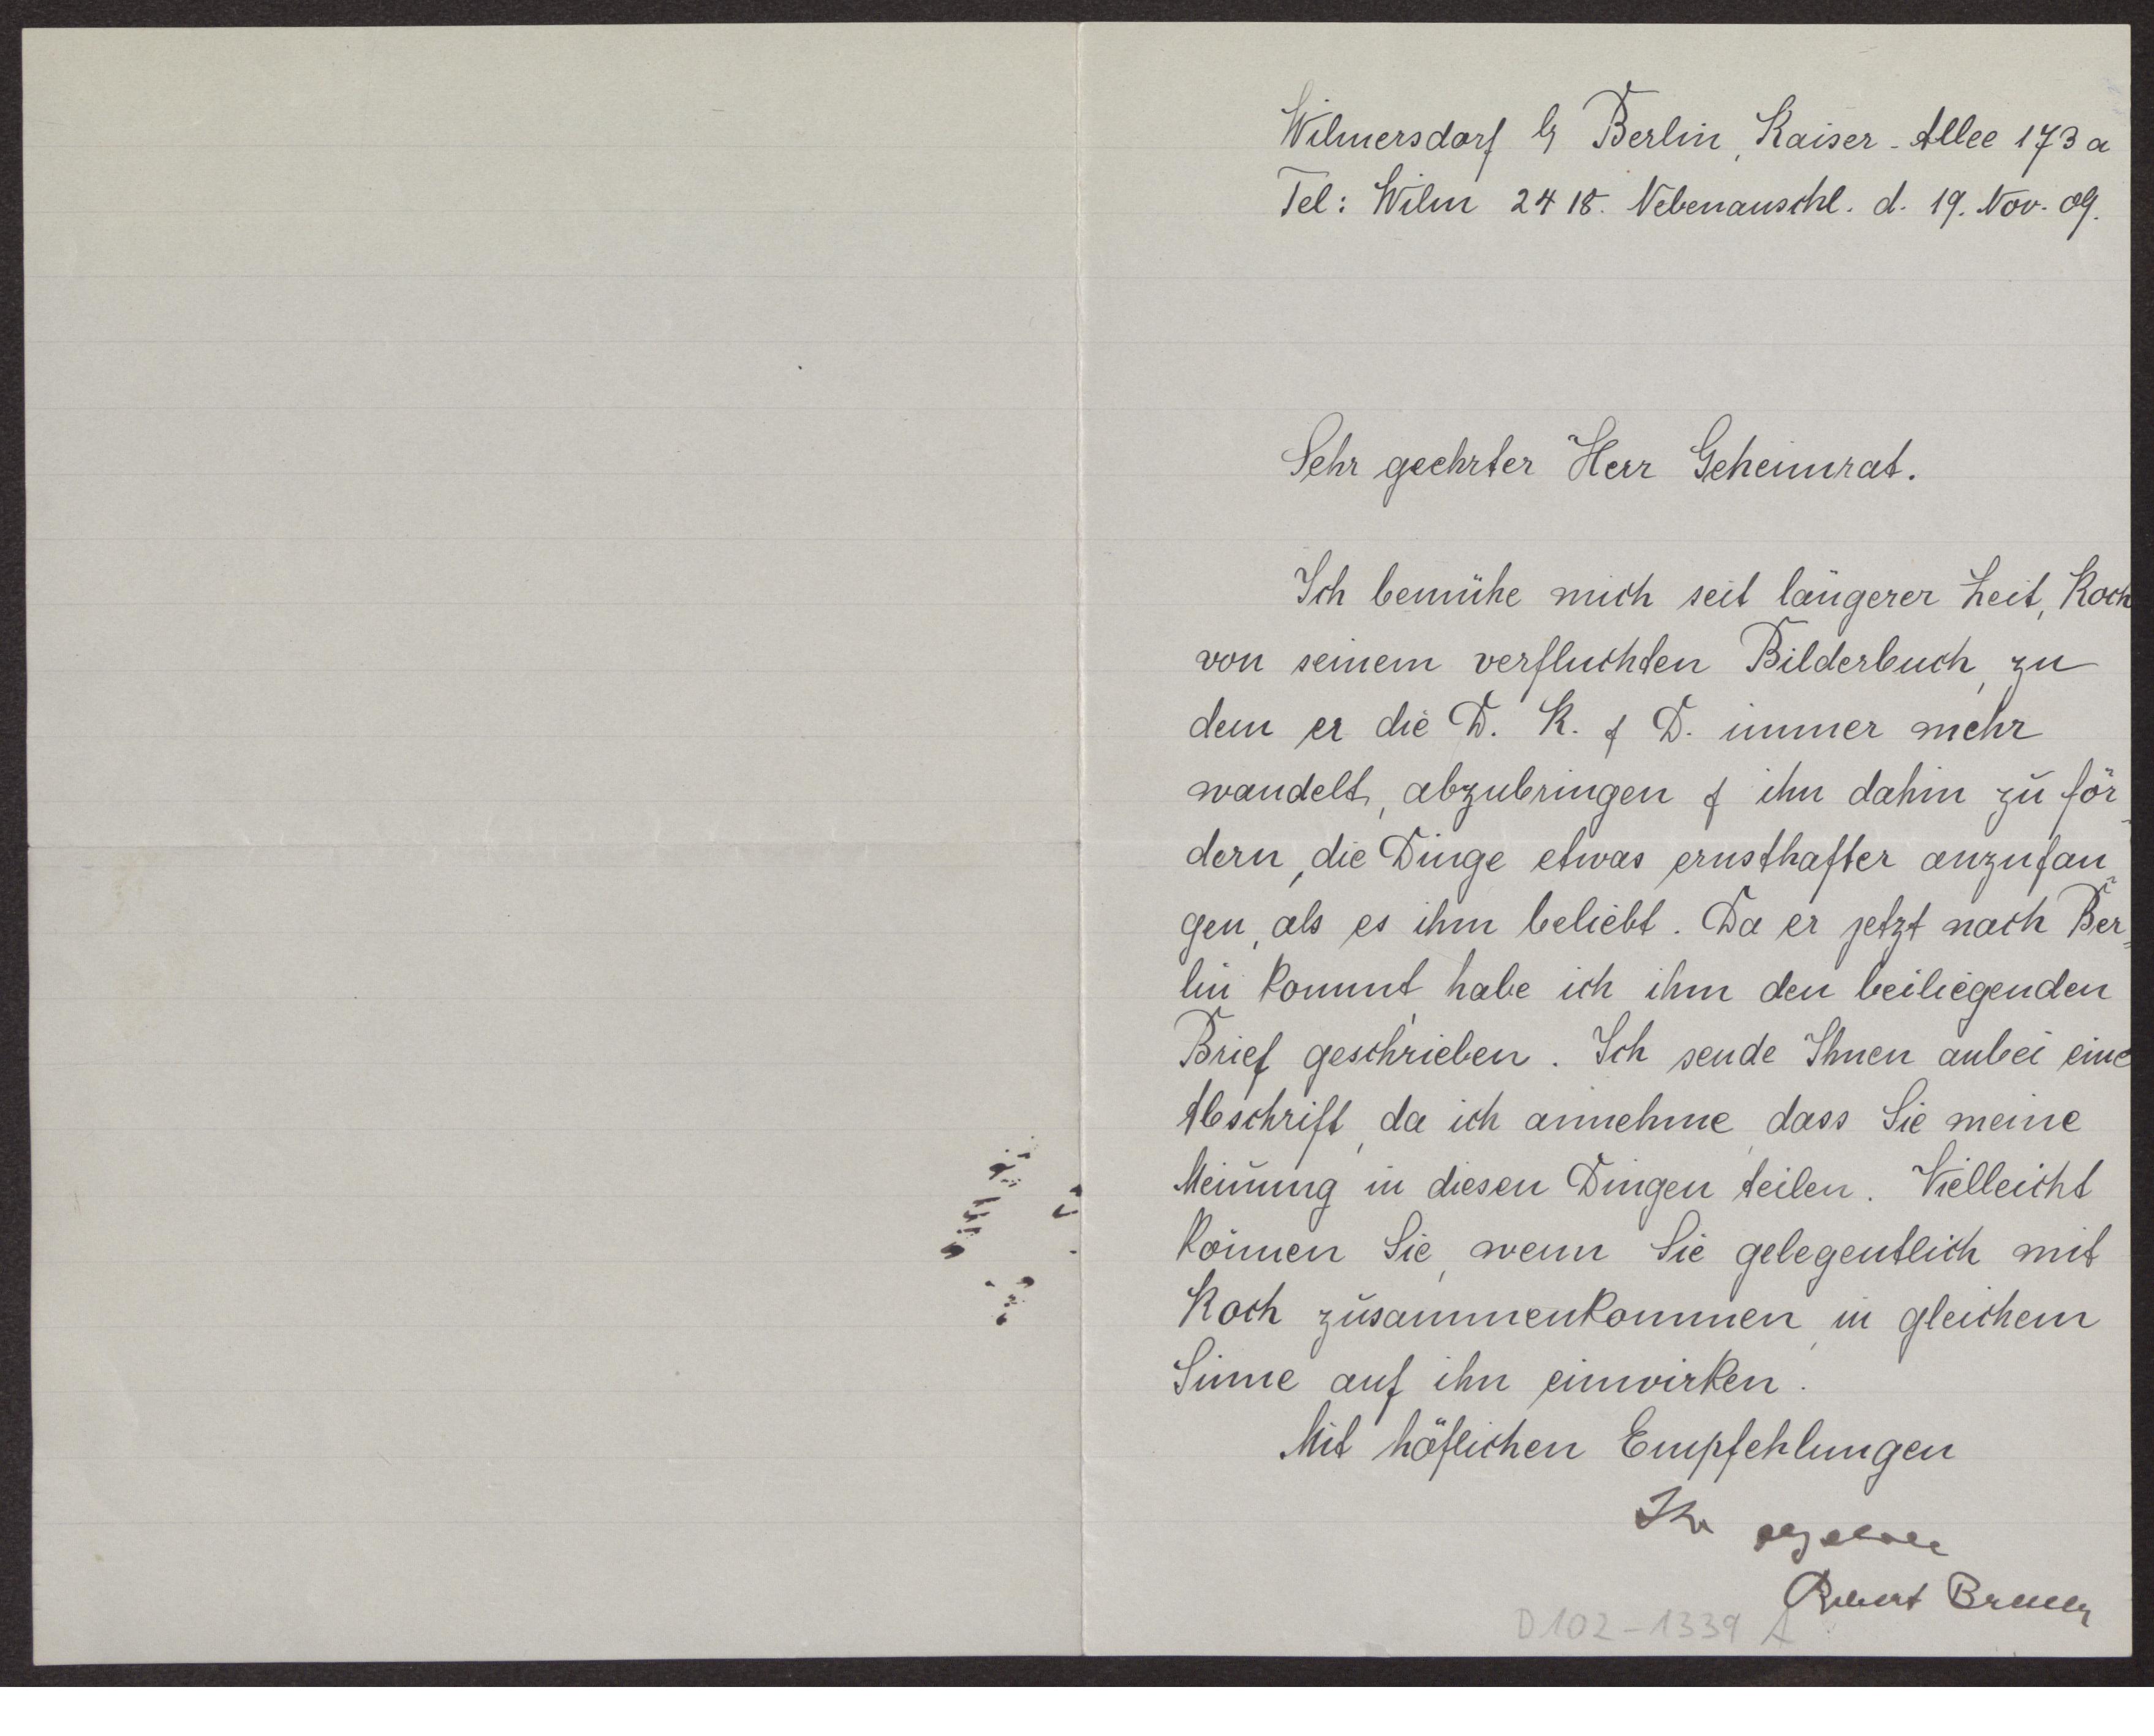 Wilmersdorf b/ Berlin, Kaiser-Allee 173 a
Tel: Wilm 2418. Nebenanschl. d. 19. Nov. 09.
Sehr geehrter Herr Geheimrat.
Ich bemühe mich seit längerer Zeit, Koch
von seinem verfluchten Bilderbuch, zu
dem er die D. K. & D. immer mehr
wandelt, abzubringen & ihn dahin zu för-
dern, die Dinge etwas ernsthafter anzufan-
gen, als es ihm beliebt. Da er jetzt nach Ber=
lin kommt, habe ich ihm den beiliegenden
Brief geschrieben. Ich sende Ihnen anbei eine
Abschrift, da ich annehme, dass Sie meine
Meinung in diesen Dingen teilen. Vielleicht
können Sie, wenn Sie gelegentlich mit
Koch zusammenkommen, in gleichem
Sinne auf ihn einwirken.
Mit höflichen Empfehlungen
Ihr
Robert Breuer
D102-1339 A